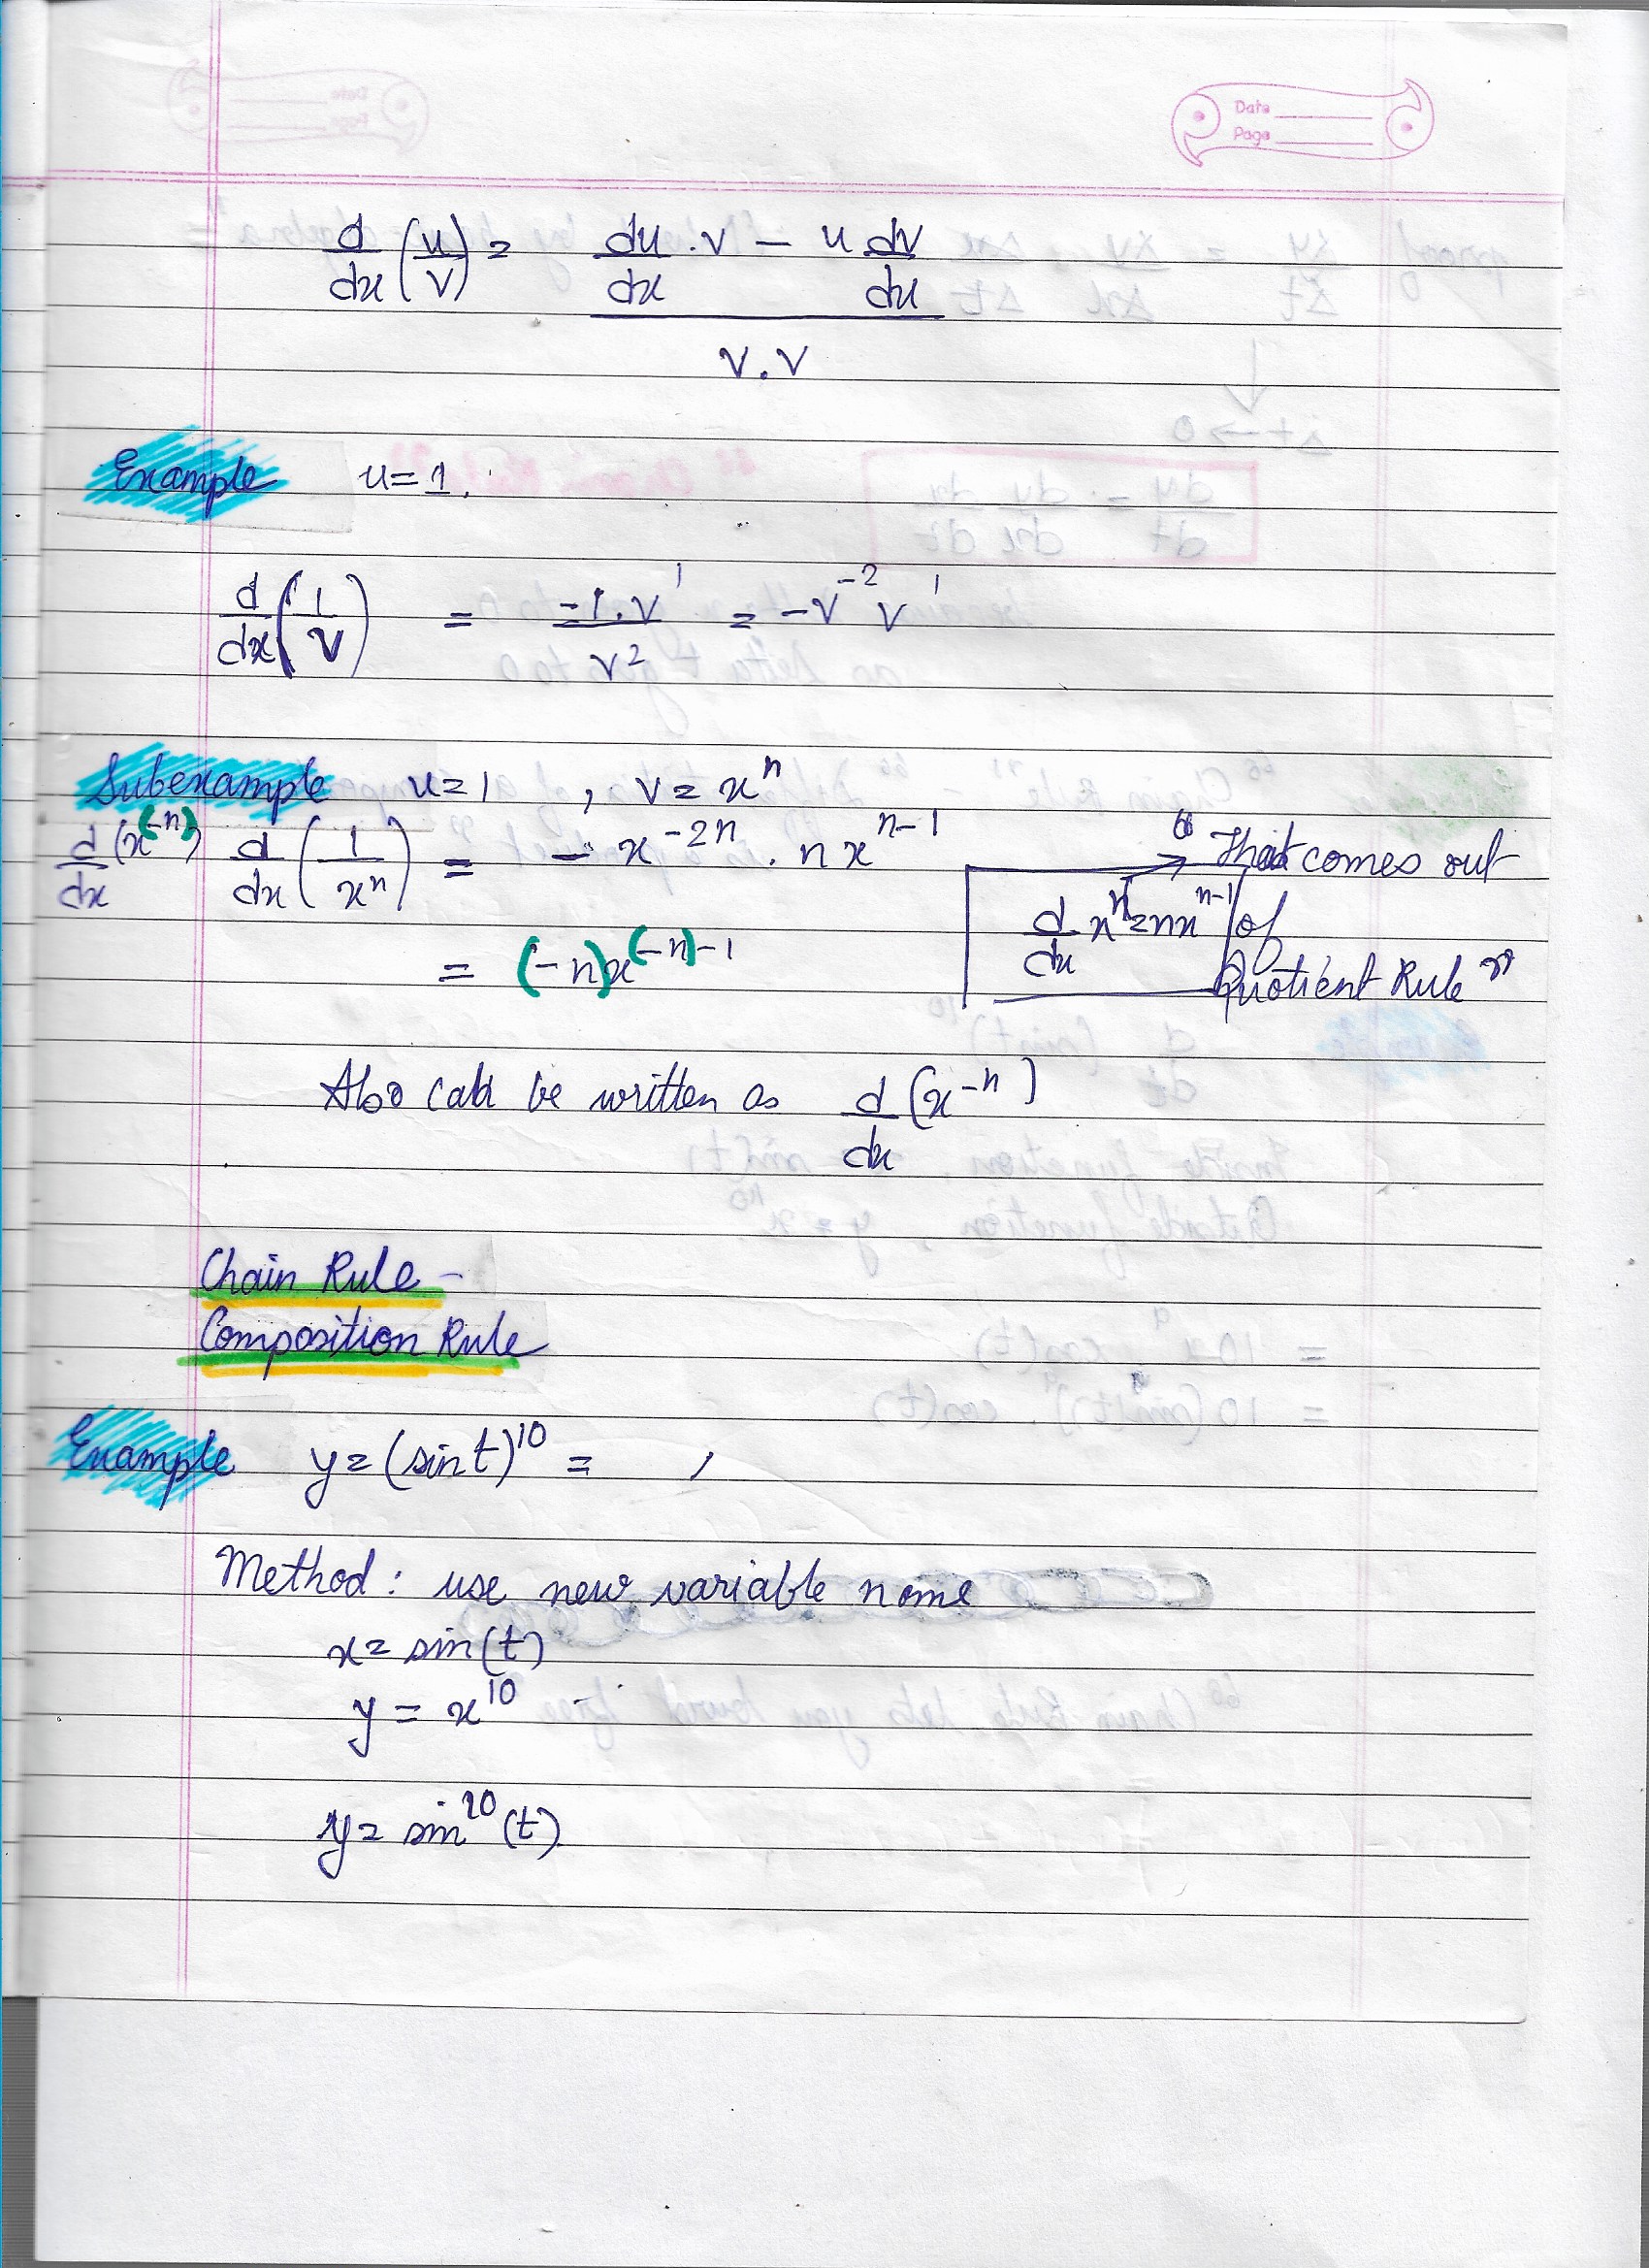 Date
Page
d/dx (u/v) = (du/dx . v - u dv/dx) / v.v
Example u=1.
d/dx (1/v) = -1.v' / v² = -v⁻² v'
Subexample u=1 , v=xⁿ
d/dx (x⁽⁻ⁿ⁾) d/dx (1/xⁿ) = - x⁻²ⁿ . n xⁿ⁻¹
= (-n)x⁽⁻ⁿ⁾⁻¹
d/dx xⁿ = nxⁿ⁻¹
“ That comes out
of
Quotient Rule ”
Also can be written as d/dx (x⁻ⁿ)
Chain Rule -
Composition Rule
Example y = (sin t)¹⁰ = ,
Method : use new variable name
x = sin(t)
y = x¹⁰
y = sin¹⁰(t)